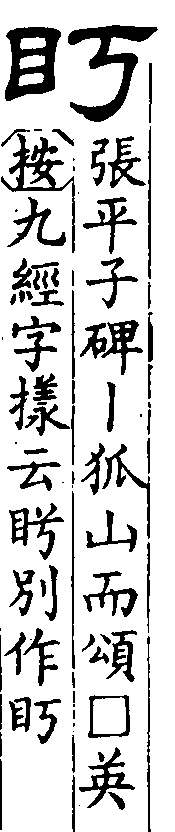 張平子碑丨狐山而頌□英
按九經字樣云盻別作